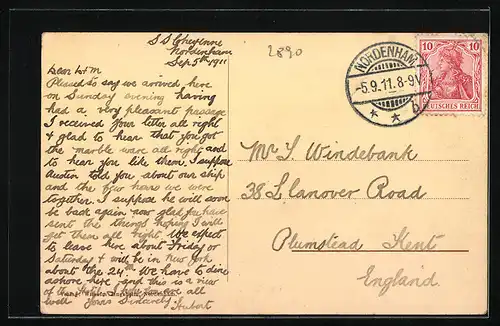 S S Cheyenne
Nordenham
Sep 5th 1911
Dear
Pleased to say we arrived here
on Sunday evening having
had a very pleasant passage
I received your letter all right
& glad to hear that you got
the marble ware all right and
to hear you like them. I suppose
Austin told you about our ship
and the few hours we were
together. I suppose he will soon
be back again now glad you have
sent the things hoping I will
get them all right. We expect
to leave here about Friday or
Saturday & will be in New York
about the 24th. We have to dine
ashore here and this is a view
of the Hotel. Hope you are all
well Yours Sincerely
Hubert
2890
NORDENHAM
-5.9.11.8-9V
10 10
DEUTSCHES REICH
Mr S. Windebank
38 Llanover Road
Plumstead Kent
England